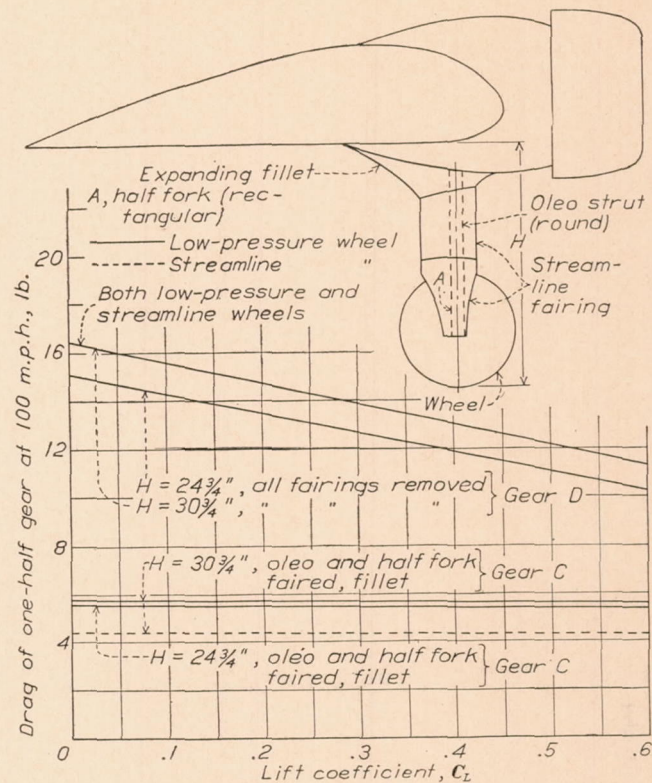 Expanding fillet
A, half fork (rec-
tangular)
Low-pressure wheel
Streamline "
Both low-pressure and
streamline wheels
Oleo strut
(round)
H
Stream-
line
fairing
A
Wheel
H = 24¾", all fairings removed
H = 30¾", " " "
Gear D
H = 30¾", oleo and half fork
faired, fillet
Gear C
H = 24¾", oleo and half fork
faired, fillet
Gear C
Drag of one-half gear at 100 m.p.h., lb.
20
16
12
8
4
0 .1 .2 .3 .4 .5 .6
Lift coefficient, C_L